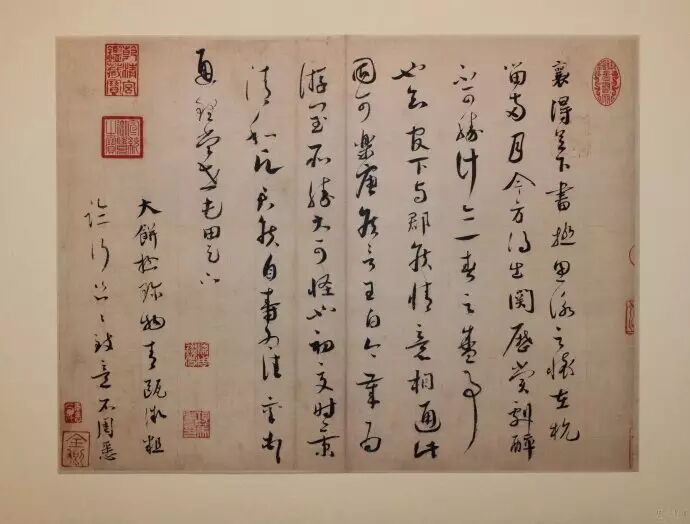 襄得足下書極思詠之懷在杭
留兩月今方得出關歷賞劇醉
不可勝計亦一春之盛事
也知官下與郡侯情意相通此
固可樂唐侯言王白今歲為
游閏所勝大可怪也初夏時景
清和願君侯自壽為佳襄頓首
通理當世屯田足下
大餅極珍物青甌微粗
臨行匆匆致意不周悉
乾清宮鑑藏寶